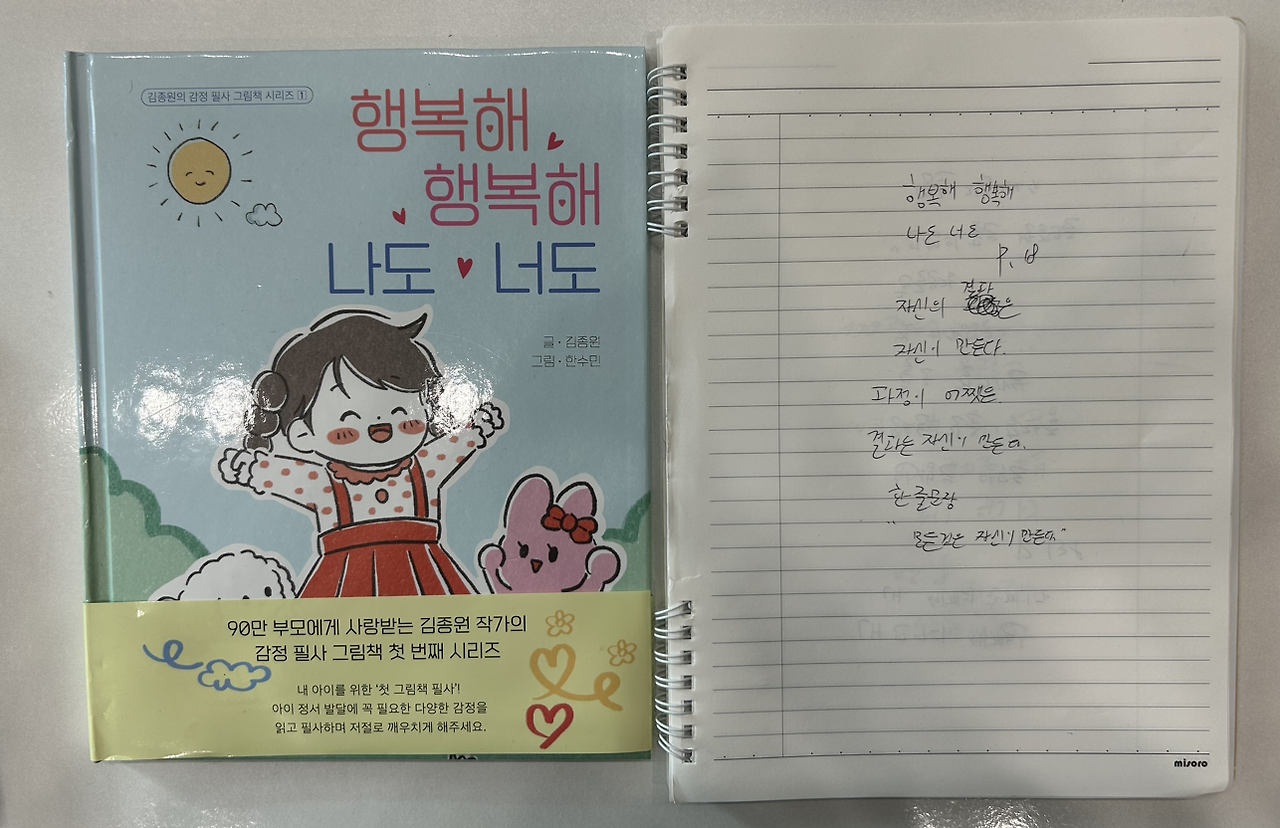 김종원의 감정 필사 그림책 시리즈 1
행복해
행복해
나도 너도
글·김종원
그림·한수민
90만 부모에게 사랑받는 김종원 작가의
감정 필사 그림책 첫 번째 시리즈
내 아이를 위한 '첫 그림책 필사'!
아이 정서 발달에 꼭 필요한 다양한 감정을
읽고 필사하며 저절로 깨우치게 해주세요.
행복해 행복해
나도 너도
P.
자신의 결과은
자신이 만든다.
과정이 어쨌든
결과는 자신이 만든다.
한 줄 문장
"모든것은 자신이 만든다"
misoro